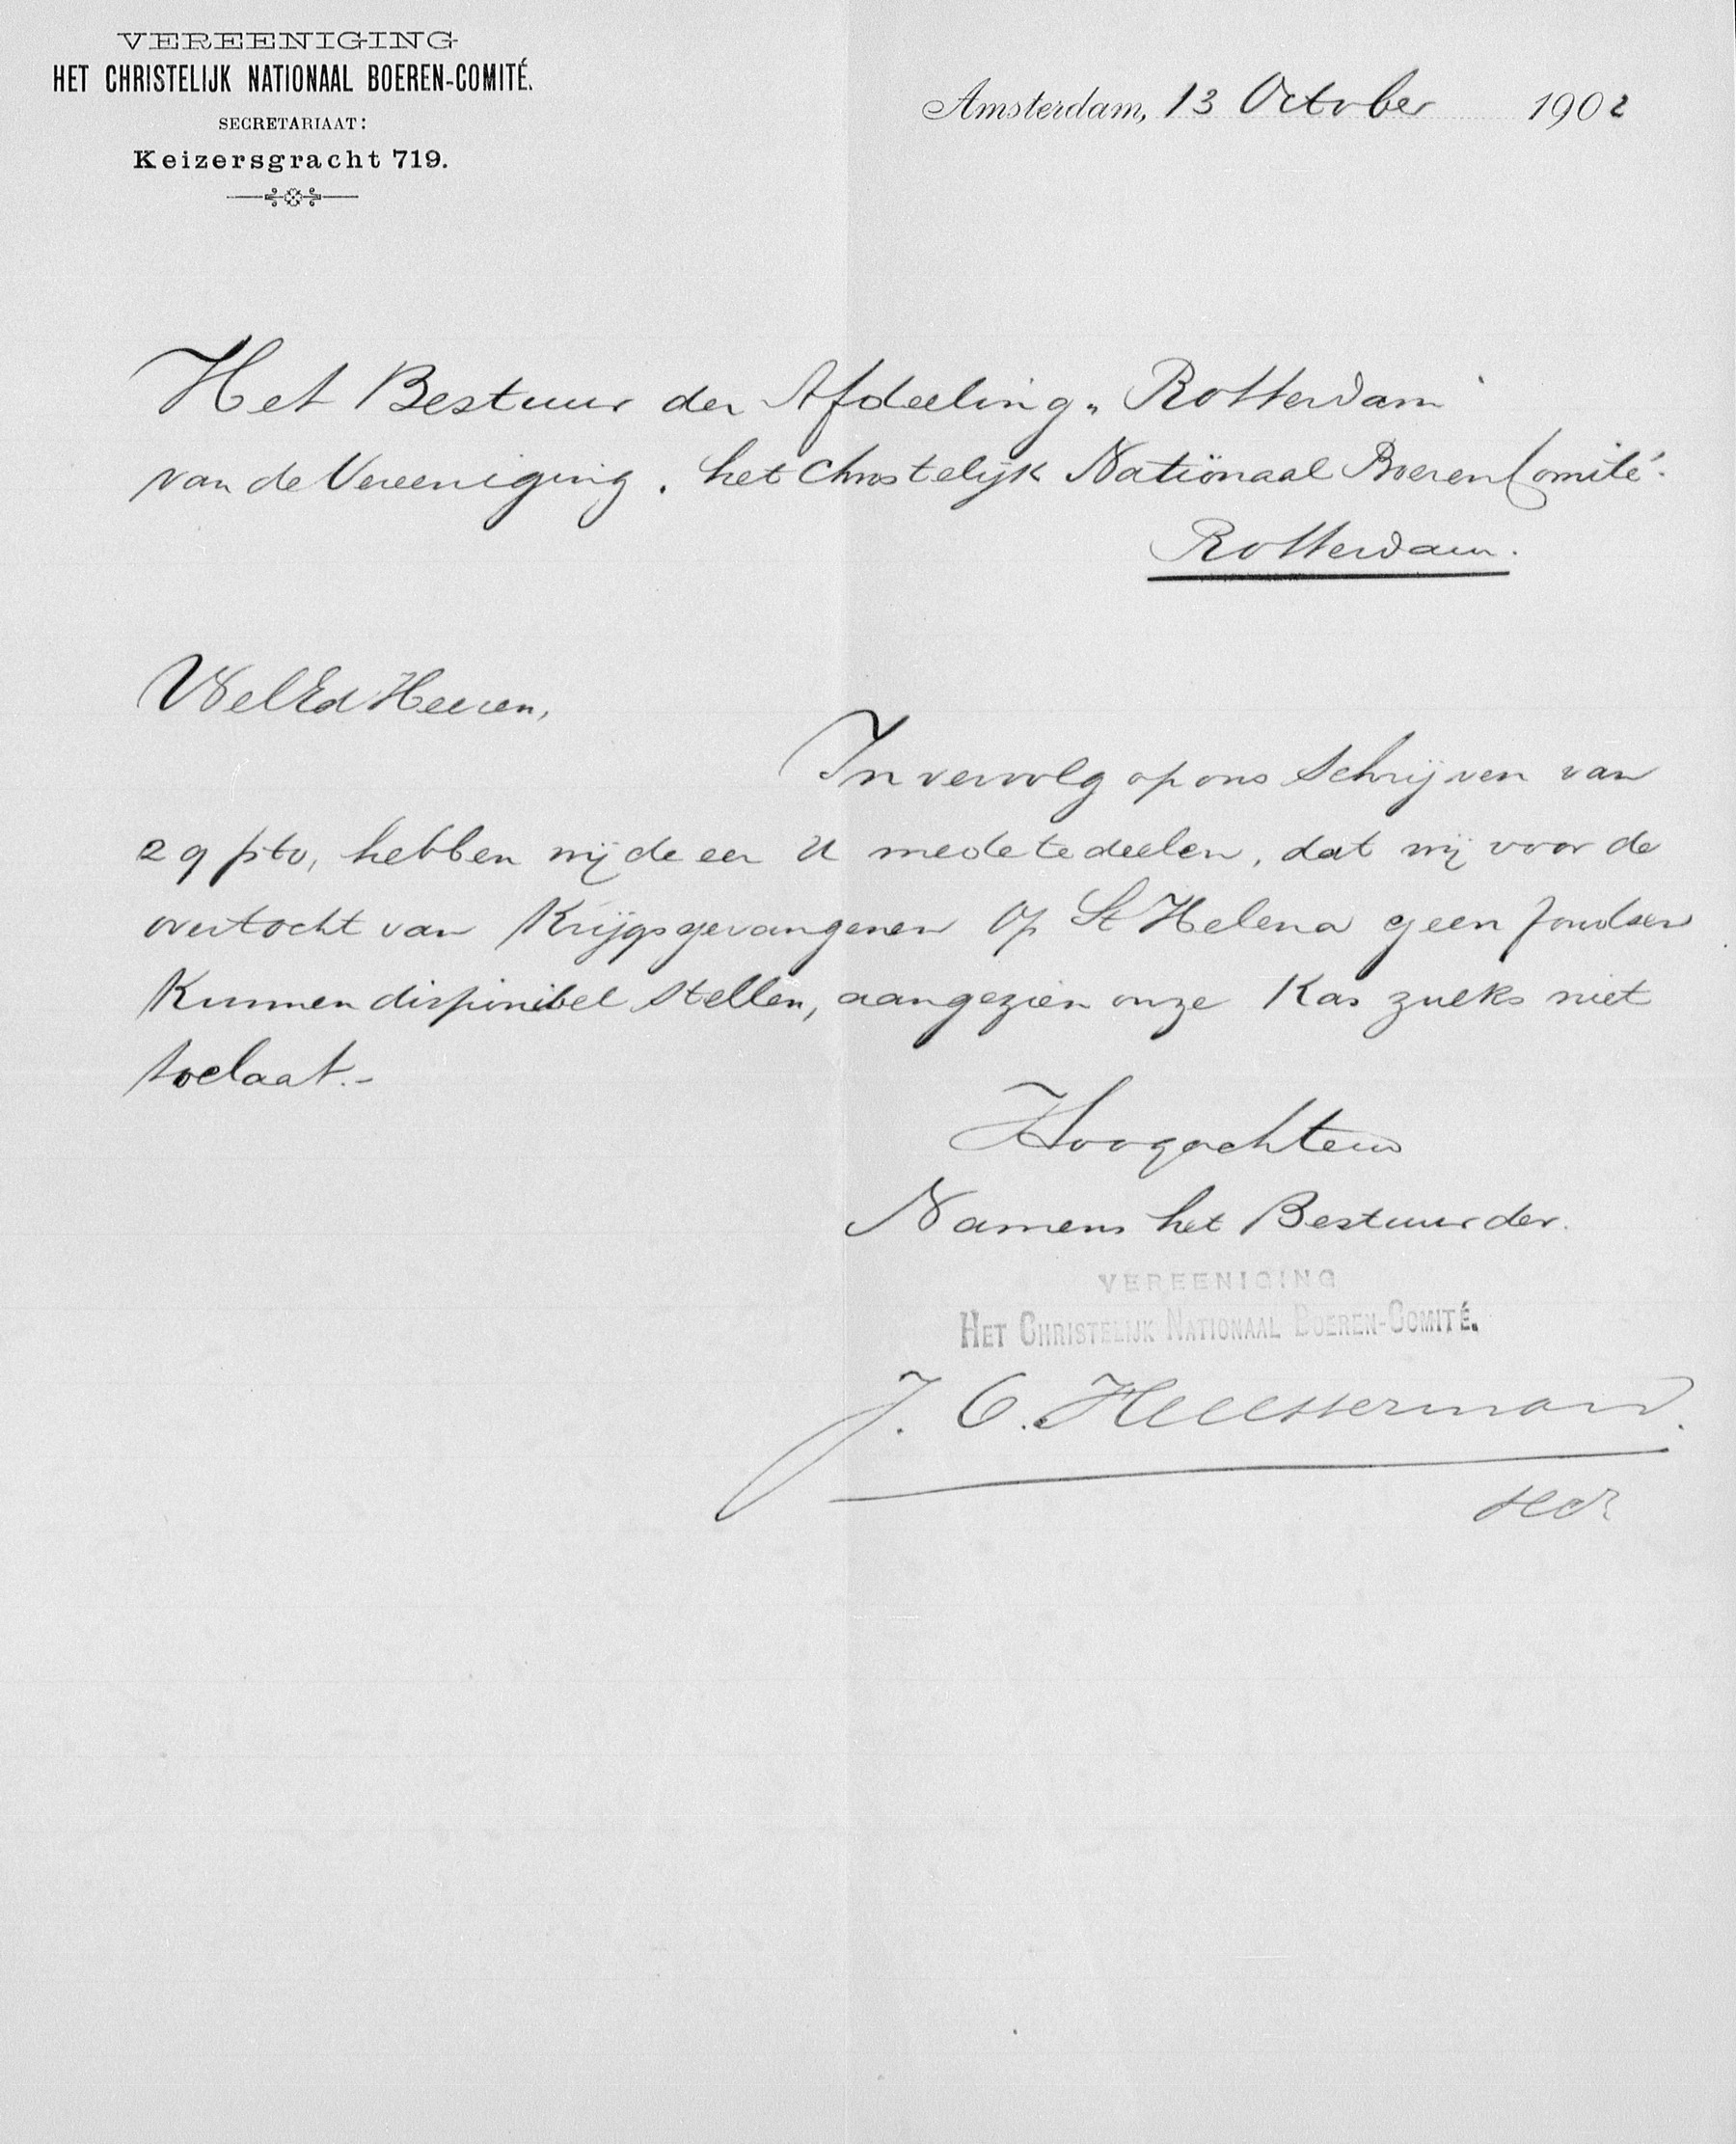 VEREENIGING
HET CHRISTELIJK NATIONAAL BOEREN-COMITÉ.
SECRETARIAAT:
Keizersgracht 719.
Amsterdam, 13 October 1902
Het Bestuur der Afdeeling „Rotterdam"
van de Vereeniging „het Christelijk Nationaal Boeren Comité".
Rotterdam.
WelEd Heeren,
In vervolg op ons schrijven van
29 psto, hebben wij de eer U mede te deelen, dat wij voor de
overtocht van Krijgsgevangenen op St Helena geen fondsen
kunnen disponibel stellen, aangezien onze Kas zulks niet
toelaat.-
Hoogachtend
Namens het Bestuur der.
VEREENIGING
HET CHRISTELIJK NATIONAAL BOEREN-COMITÉ.
J. C.
secr